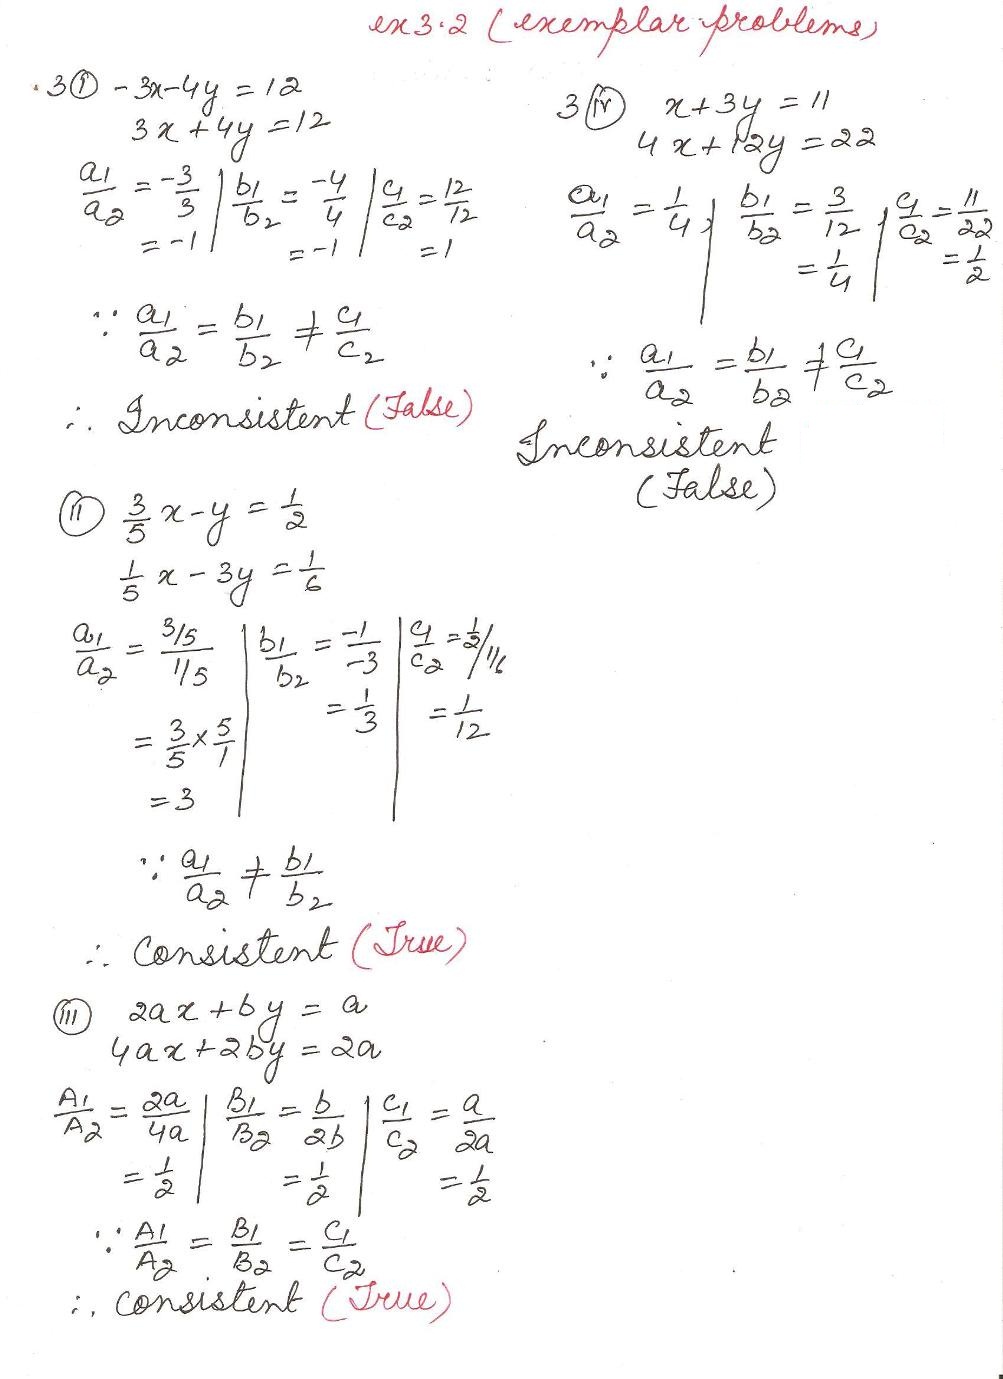 ex 3.2 (exemplar problems)
3 (i) -3x-4y = 12
3x+4y = 12
a1/a2 = -3/3 | b1/b2 = -4/4 | c1/c2 = 12/12
= -1 | = -1 | = 1
∵ a1/a2 = b1/b2 ≠ c1/c2
∴ Inconsistent (False)
(ii) 3/5 x-y = 1/2
1/5 x - 3y = 1/6
a1/a2 = 3/5 / 1/5 | b1/b2 = -1/-3 | c1/c2 = 1/2 / 1/6
= 3/5 × 5/1 | = 1/3 | = 1/12
= 3
∵ a1/a2 ≠ b1/b2
∴ Consistent (True)
(iii) 2ax + by = a
4ax+2by = 2a
A1/A2 = 2a/4a | B1/B2 = b/2b | C1/C2 = a/2a
= 1/2 | = 1/2 | = 1/2
∵ A1/A2 = B1/B2 = C1/C2
∴ Consistent (True)
3 (iv) x+3y = 11
4x+12y = 22
a1/a2 = 1/4, | b1/b2 = 3/12, | c1/c2 = 11/22
= 1/4 | = 1/2
∵ a1/a2 = b1/b2 ≠ c1/c2
Inconsistent
(False)